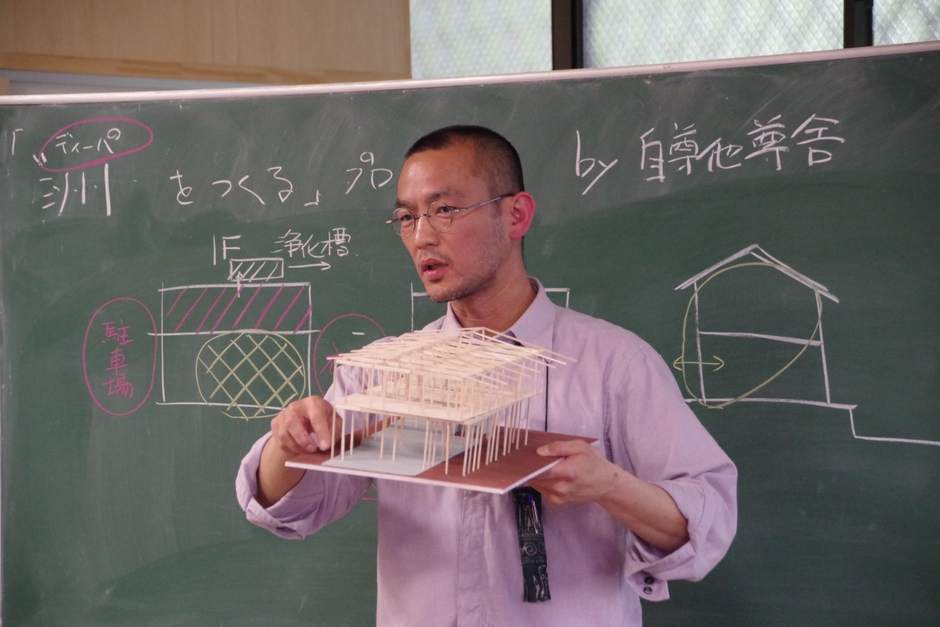 ディーパの
「洲をつくる」プロ by 自尊他尊舎
1F 浄化槽
駐車場